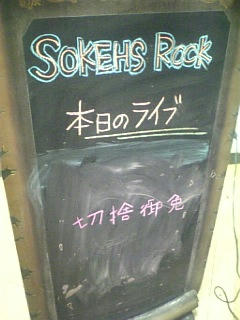 SOKEHS ROCK
本日のライブ
切捨御免